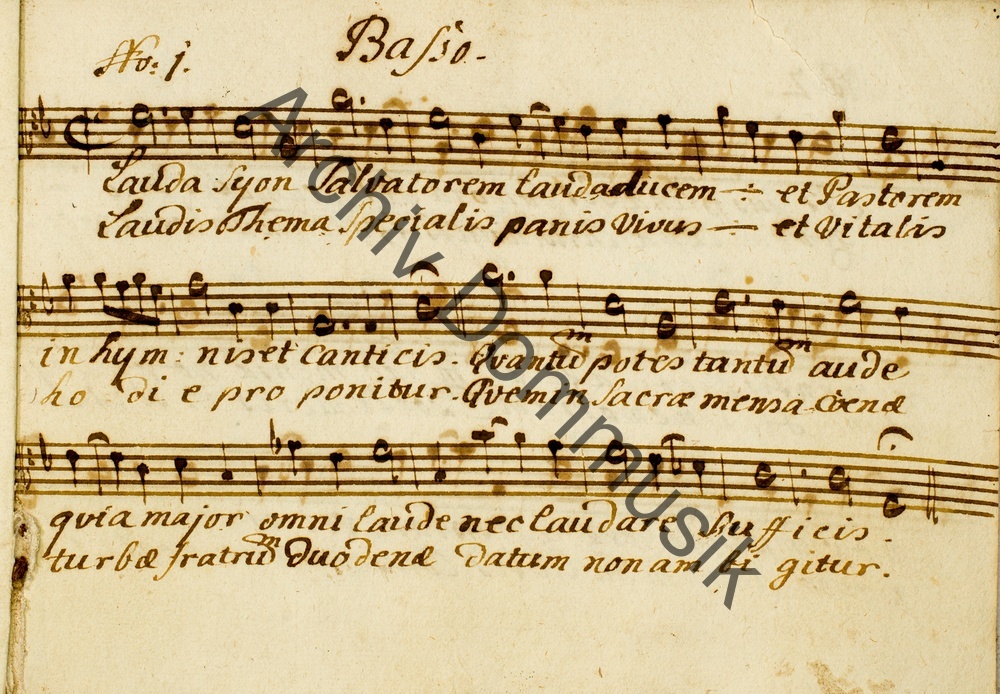 No: 1.
Basso.
Lauda Syon Salvatorem lauda ducem ÷ et Pastorem
Laudis Thema Specialis panis Vivus — et Vitalis
in hym: nis et canticis. Qvantum potes tantum aude
ho di e pro ponitur. Qvem in Sacræ mensa Cœnæ
qvia major omni laude nec laudare Sufficis.
turbæ fratrum duodenæ datum non am bi gitur.
Archiv Dommusik